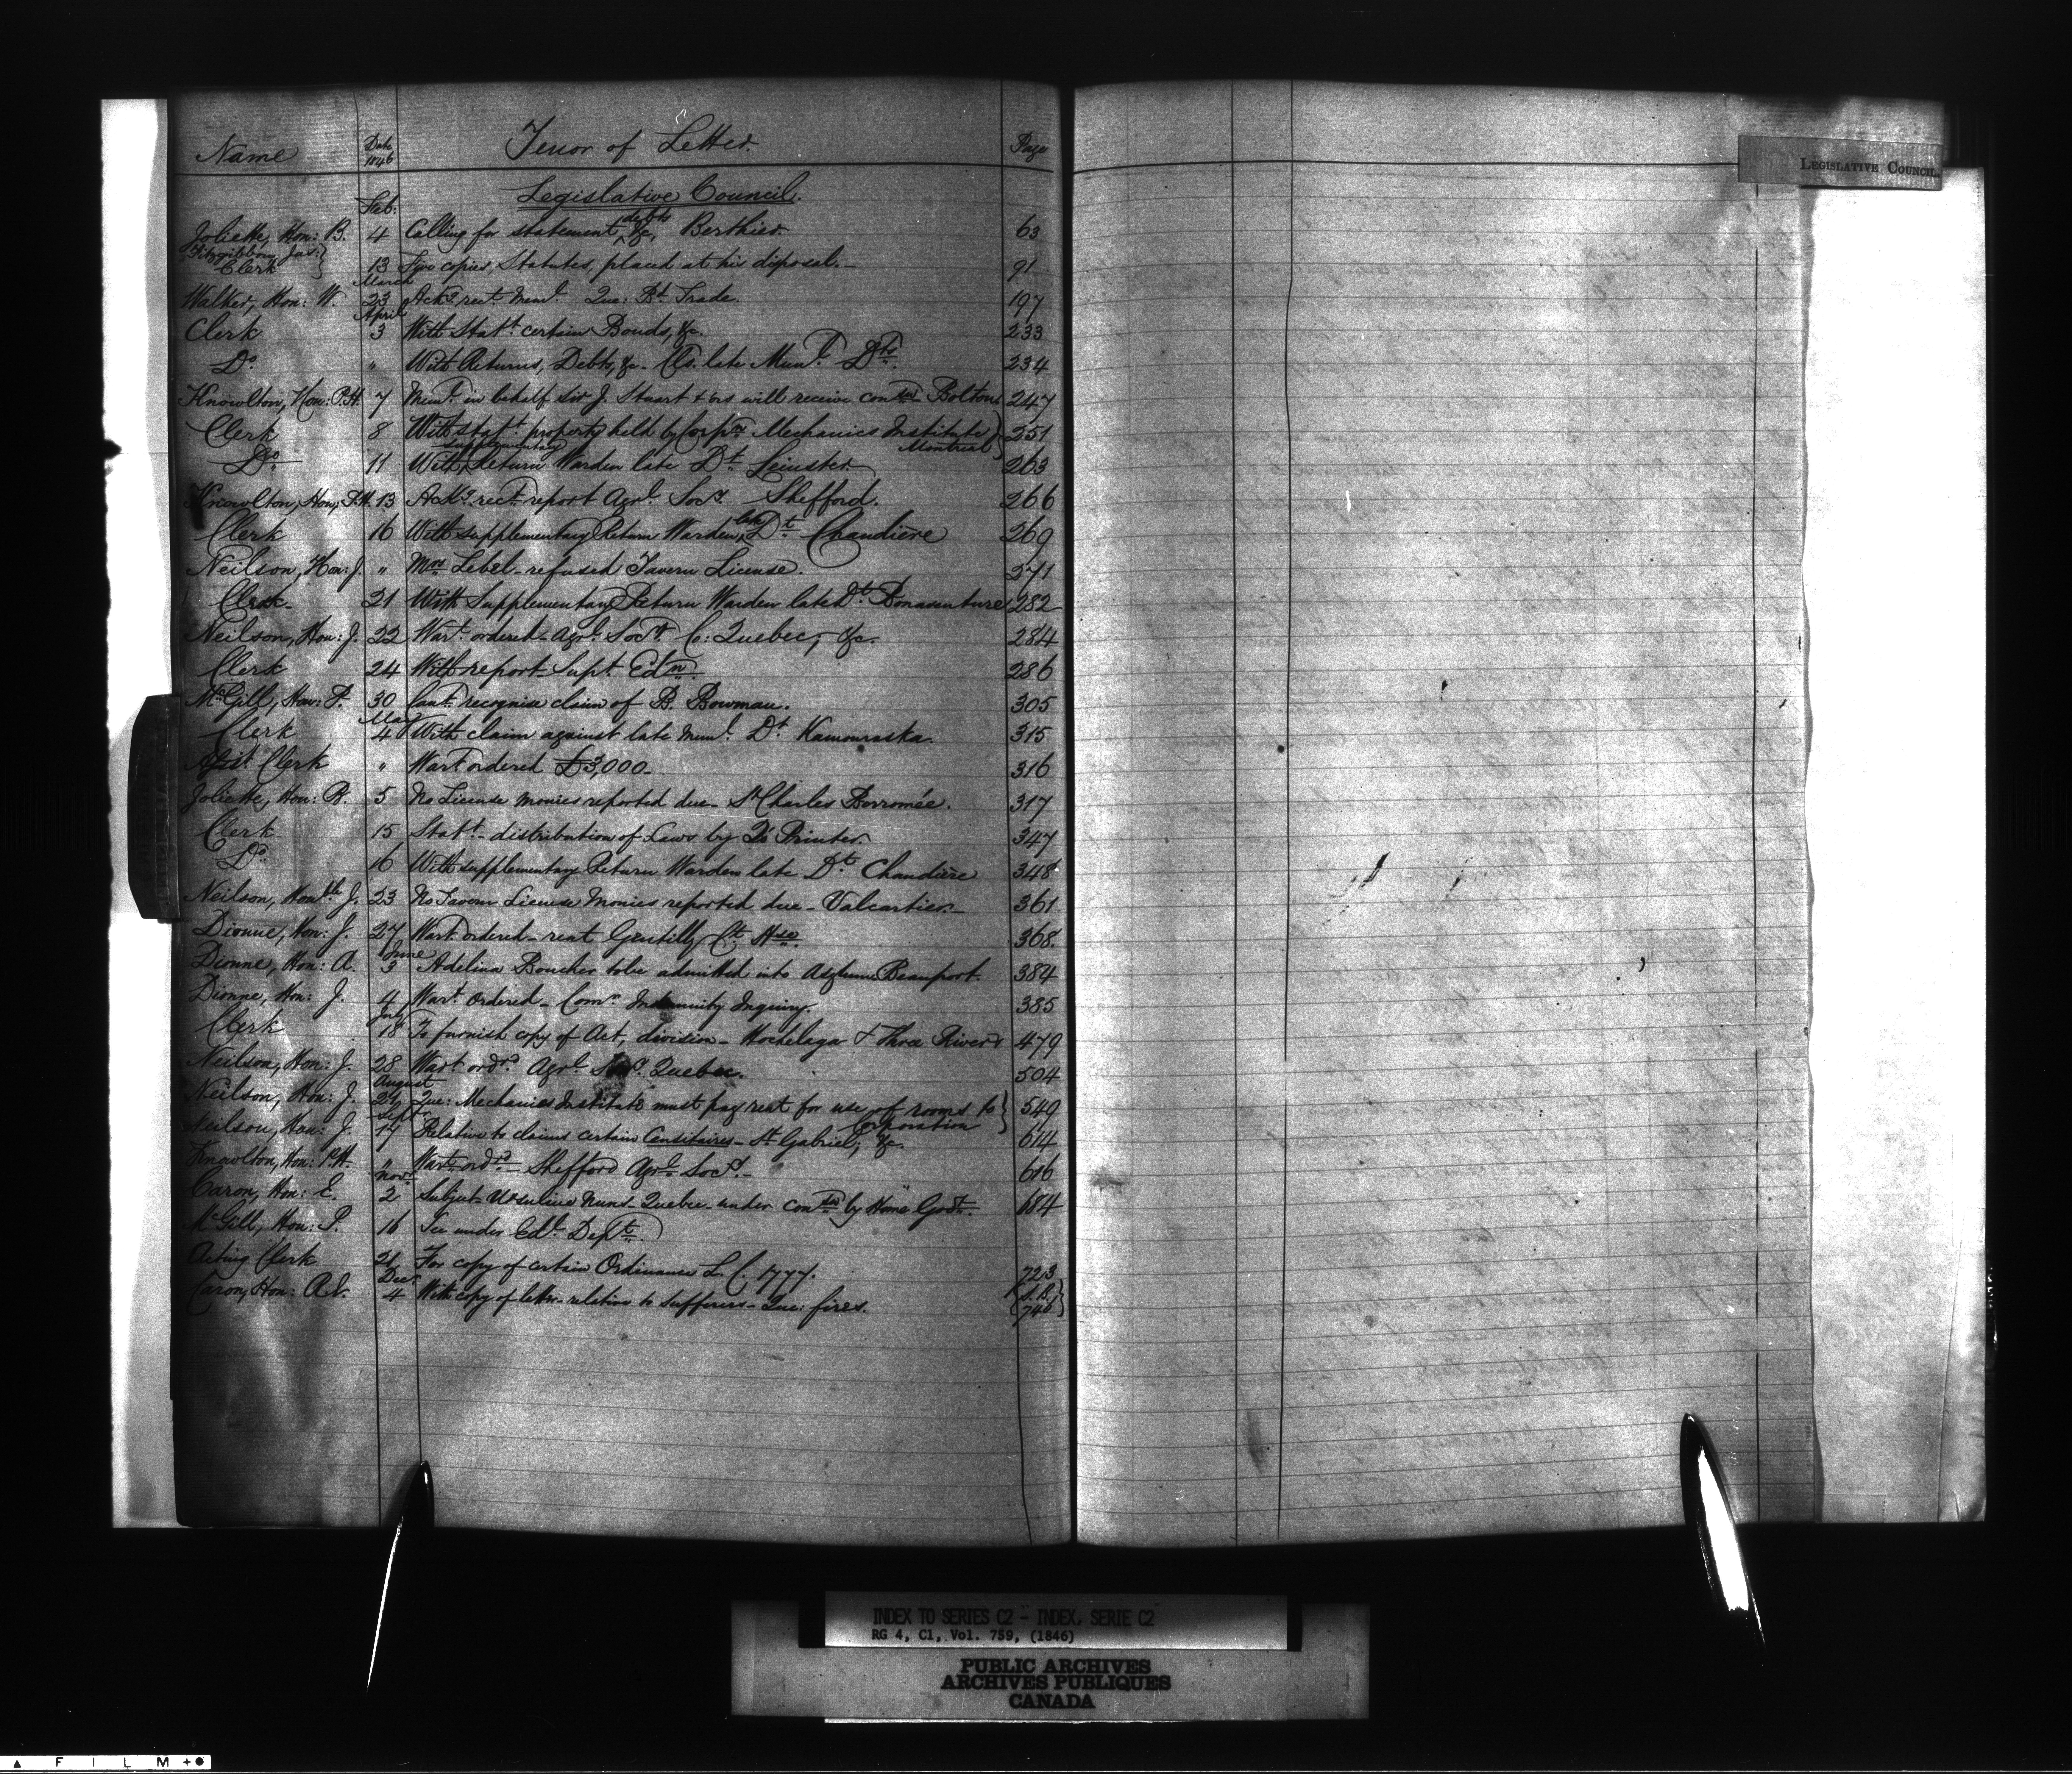 Name Date 1846 Tenor of Letter Page
Legislative Council.
Feb:
Joliette, Hon: B. 4 Calling for statement, debts &c, Berthier 63
Fitzgibbon, Jas: }
Clerk } 13 Two copies, Statutes, placed at his disposal. 91
March
Walker, Hon: W. 23 Ackg rect. Meml. Que: Bd. Trade. 197
April
Clerk 3 With Statt. certain Bonds, &c. 233
Do. " With Returns, Debts, &c - late Munl. Dts. 234
Knowlton, Hon: P.H. 7 in behalf Sir J. Stuart & ors will receive conson Bolton 247
Clerk 8 With statt. property held by Corpns Mechanics Institute } 251
Montreal
Do 11 With supplementary Return Warden late Dt. Leinster 263
Knowlton, Hon, P.H. 13 Ackg. rect. report Agrl. Socy. Shefford. 266
Clerk 16 With supplementary Return Warden, late Dt. Chaudière 269
Neilson, Hon: J. " Lebel - refused Tavern License. 271
Clerk 21 With Supplementary Return Warden late Dt. Bonaventure 282
Neilson, Hon: J. 22 Wart. ordered - Agrl. Socy. C: Quebec, &c. 284
Clerk 24 With report Supt. Edn. 286
McGill, Hon: P. 30 Cant. recognise claim of B. Bowman. 305
May
Clerk 4 With claim against late Munl. Dt. Kamouraska. 315
Asst. Clerk " Wart. ordered £3,000 - 316
Joliette, Hon: B. 5 No License monies reported due - St Charles Borromée. 317
Clerk 15 Statt. - distribution of Laws by Q's Printer. 347
Do. 16 With supplementary Return Warden late Dt. Chaudière 348
Neilson, Honble J. 23 No Tavern License Monies reported due - Valcartier - 361
Dionne, Hon: J. 27 Wart. ordered - rent Gentilly Ct. Hse. 368.
June
Dionne, Hon: A. 3 Adelina Boucher to be admitted into Asylum Beauport. 384
Dionne, Hon: J. 4 Wart. Ordered - Comr. Indemnity Inquiry. 385
July
Clerk 18 To furnish copy of Act, division - Hochelaga & Three Rivers 479
Neilson, Hon: J. 28 Wart. ordd. Agrl. Socy. Quebec. 504
August
Neilson, Hon: J. Que: Mechanics Institute must pay rent for use of rooms to } 549
Corporation
Sept.
Neilson, Hon: J. 17 Relative to claims certain Censitaires - St. Gabriel, &c. 614
Knowlton, Hon: P.H. " Wart. ordd. Shefford Agrl. Socy. - 616
Novr.
Caron, Hon: E. 2 Subject Ursuline Nuns - Quebec - under conson by Home Govt. 684
McGill, Hon: P. 16 See under Edl. Dept.
Acting Clerk 21 For copy of certain Ordinance L. C. 1777. 723
Decr
Caron, Hon: 4 With copy of letter - relative to sufferers - Que: fires. 746
LEGISLATIVE COUNCIL.
INDEX TO SERIES C2 - INDEX, SERIE C2
RG 4, C1, Vol. 759, (1846)
PUBLIC ARCHIVES
ARCHIVES PUBLIQUES
CANADA
FILM